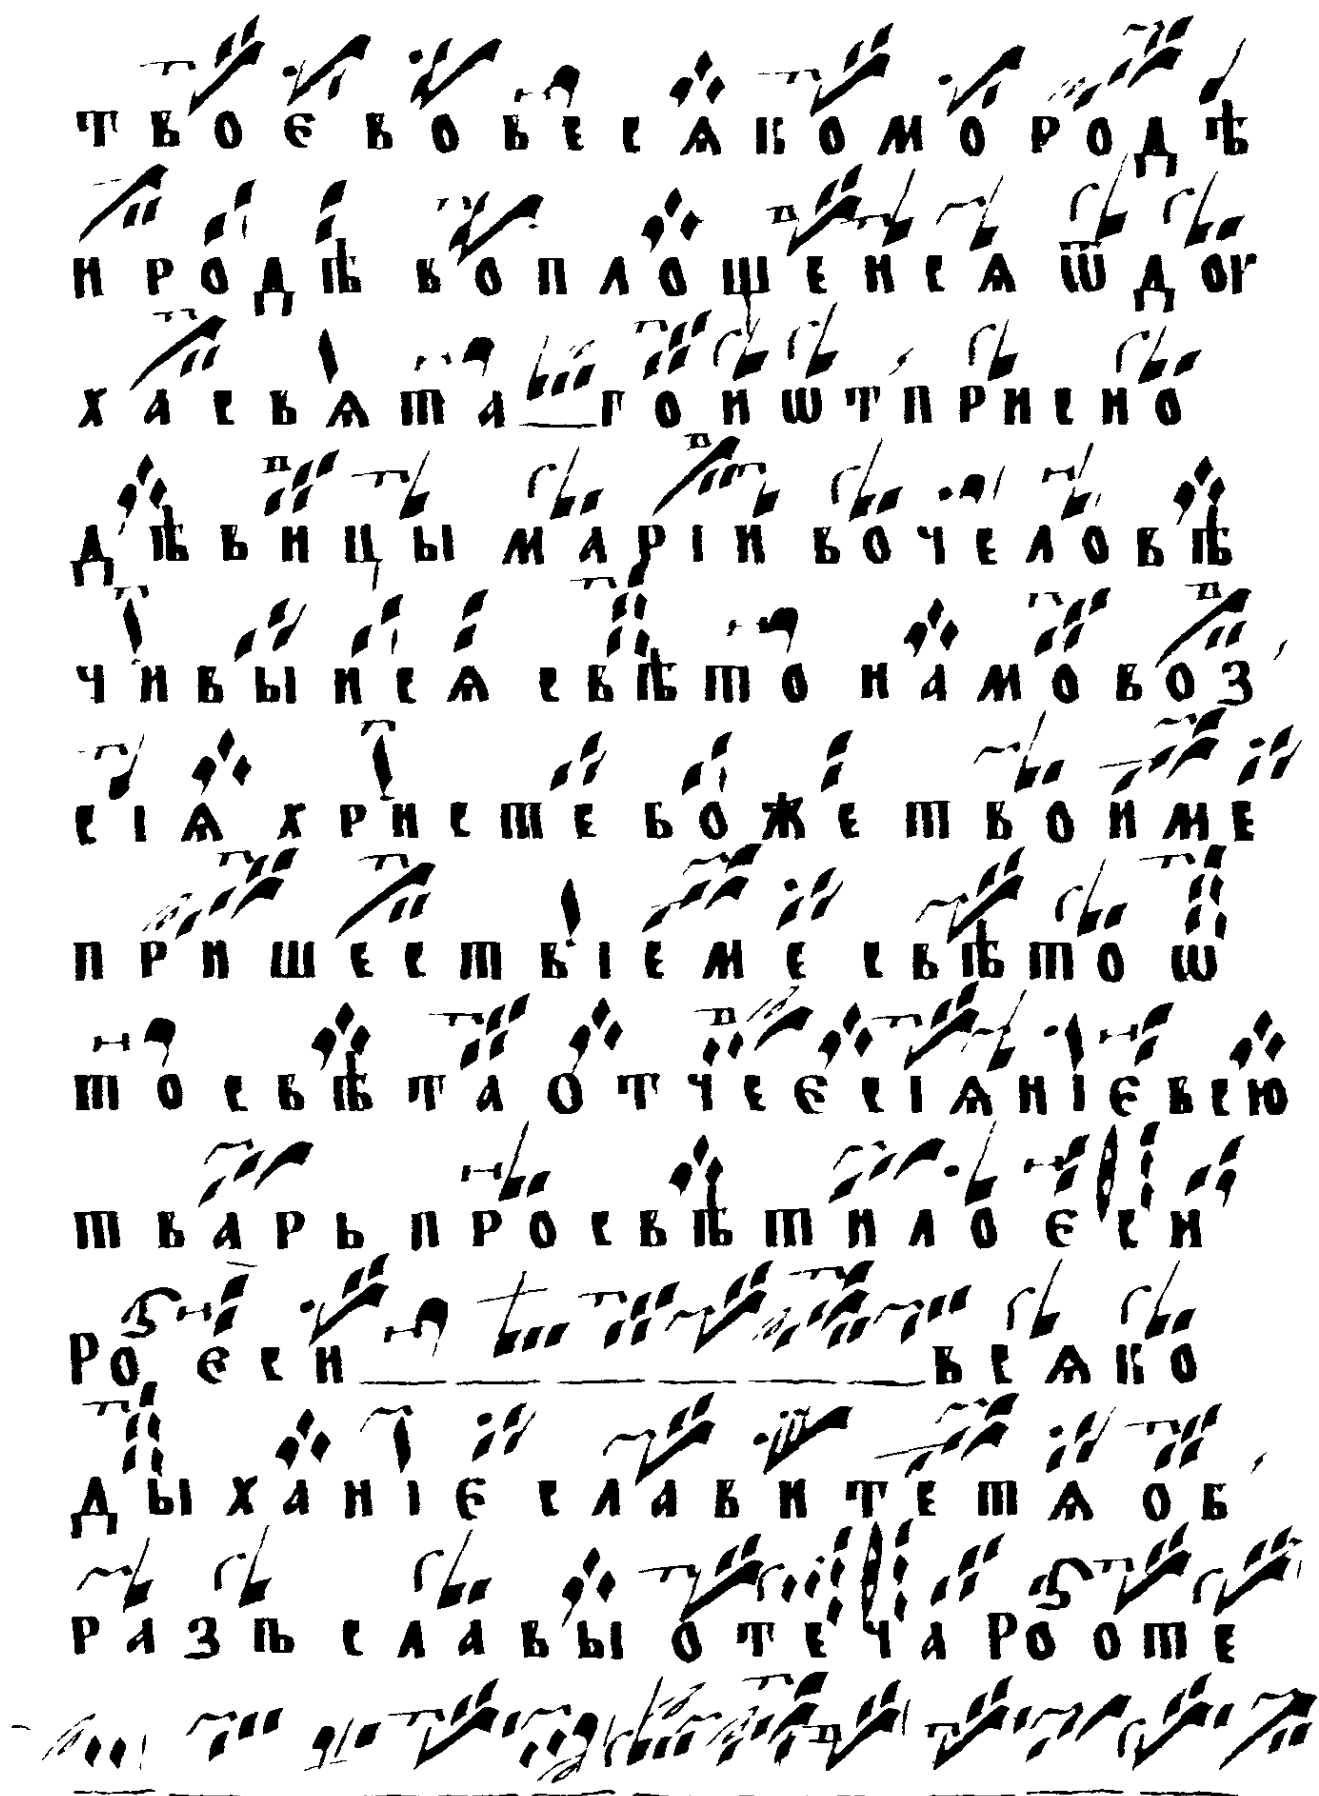 твоє во весѧкомо родѣ
и родѣ воплошеисѧ ѿ дꙋ
ха свѧта го и ѿ присно
дѣвицы маріи вочеловѣ
чивыисѧ свѣто намо воз
сіѧ христе боже твоиме
пришествіеме свѣто ѿ
то свѣта отче єсіѧніє всю
тварь просвѣтило єси
ро єси всѧко
дыханіє славите тѧ об
разѣ славы отеча ро оте